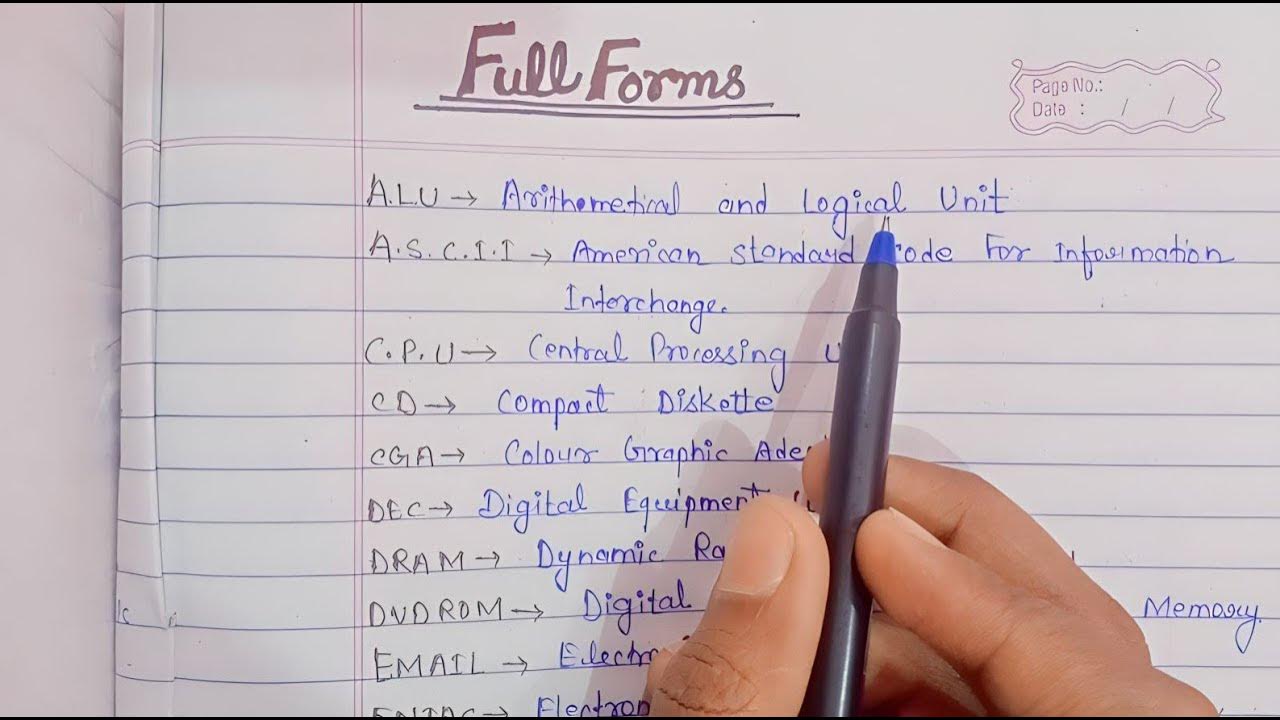 Full Forms
Page No.:
Date : / /
A.L.U → Arithemetical and Logical Unit
A.S.C.I.I → American Standard Code For Information
Interchange.
C.P.U → Central Processing
CD → Compact Diskette
CGA → Colour Graphic
DEC → Digital Equipment
DRAM → Dynamic
DVDROM → Digital Memory.
EMAIL →
ENIAC →